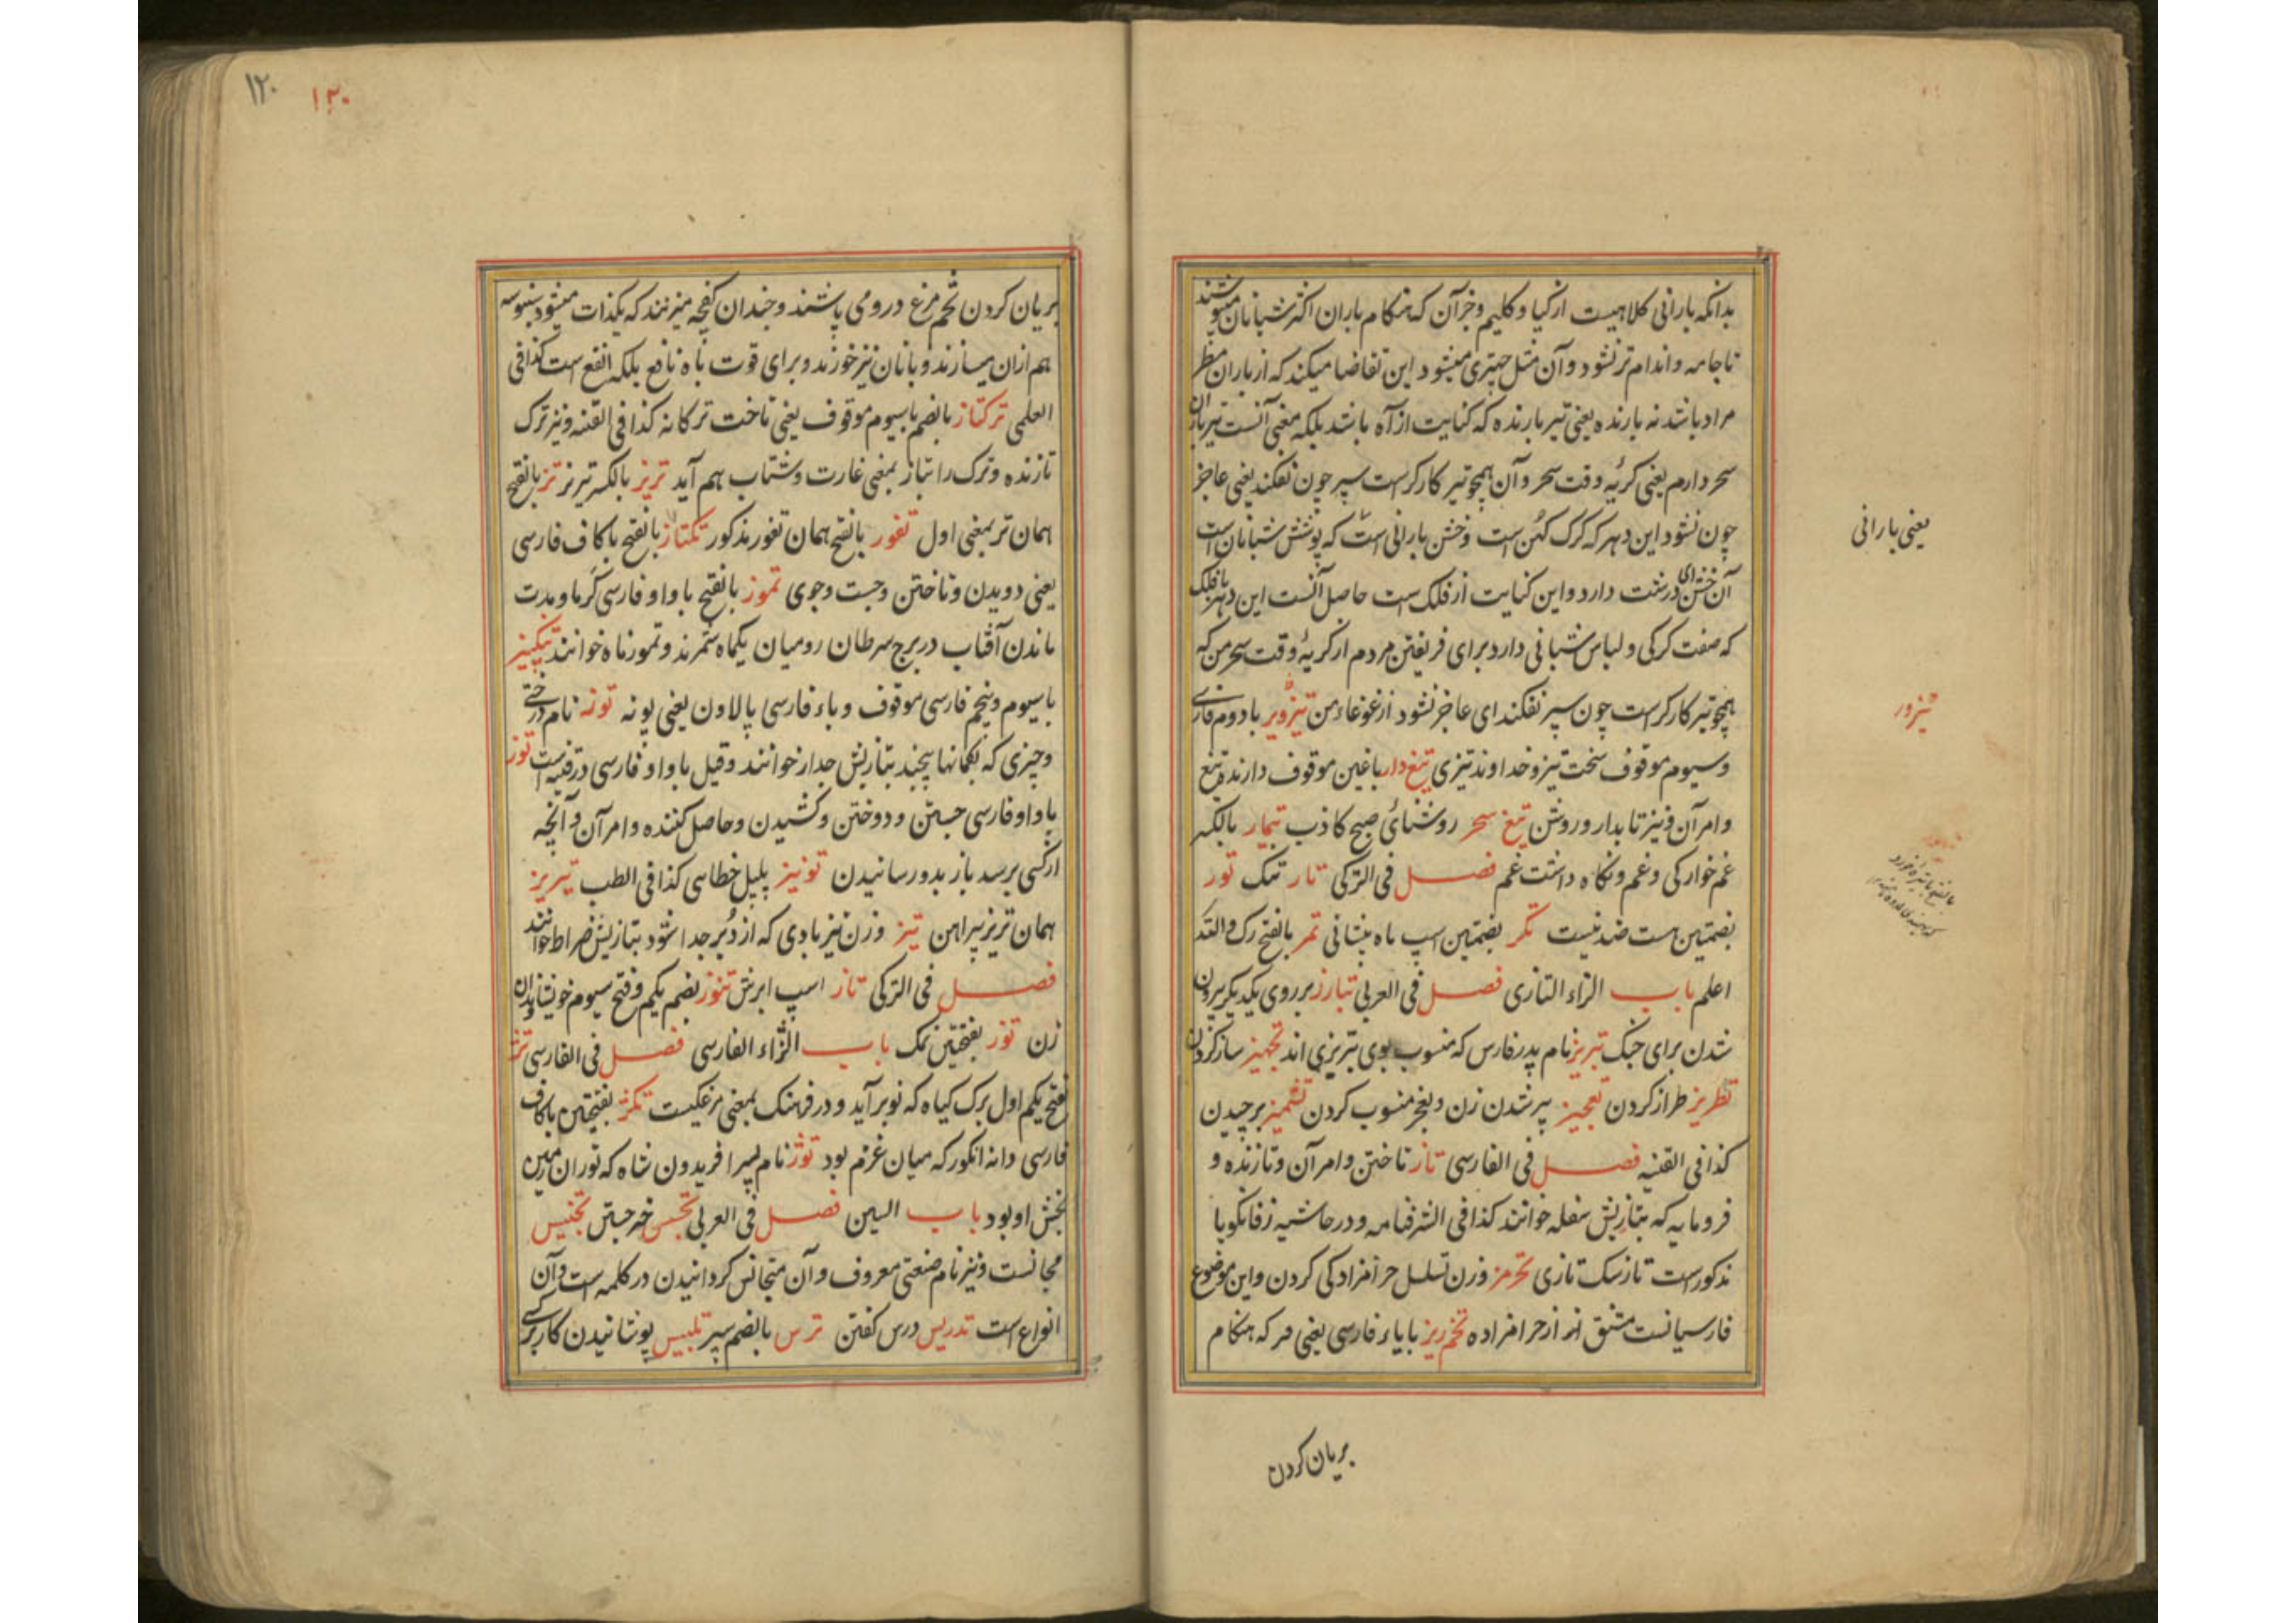 بدانکه بارانی کلاهیست از کیا و کلیم و جز آن که هنکام باران اکثر شبانان میپوشند
تا جامه و اندام تر نشود و آن مثل چهتری میشود این تقاضا میکند که از باران مطر
مراد باشد نه بارنده یعنی تیر بارنده که کنایت از آه باشد بلکه معنی آنست تیر باران
سحر دارم یعنی کریهٔ وقت سحر و آن همچو تیر کارکرست سپر چون نفکند یعنی عاجز
چون نشود این دهر که کرک کهن است و خشن بارانی است که پوشش شبانان است
آن خشن ای درشت دارد و این کنایت از فلک ست حاصل آنست این دهر با فلک
که صفت کرکی و لباس شبانی دارد برای فریفتن مردم از کریهٔ وقت سحر من که
همچو تیر کارکرست چون سپر نفکند ای عاجز نشود از غوغاء من تیزویر با دوم فارسی
و سیوم موقوف سخت تیز و خداوند تیزی تیغ دار با غین موقوف دارنده تیغ
و امر آن و نیز تابدار و روشن تیغ سحر روشنائی صبح کاذب تیمار بالکسر
غم خوارکی و غم و نکاه داشت غم فصل فی الترکی تار تنک تور
بضمتین هست ضد نیست تکر بضمتین اسپ ماه پیشانی تمر بالفتح رک والله
اعلم باب الزاء التازی فصل فی العربی تبارز بر روی یکدیکر بیرون
شدن برای جنک تبریز نام پدر فارس که منسوب بوی تبریزی اند تجهیز ساز کردن
تطریز طراز کردن تعجیز پیر شدن زن و بعجز منسوب کردن تشمیز برچیدن
کذا فی القنیه فصل فی الفارسی تاز تاختن و امر آن و تازنده و
فرومایه که بتازیش سفله خوانند کذا فی الشرفنامه و در حاشیه زفانکویا
مذکورست تاز سک تازی تحرمز وزن تسلسل حرامزادکی کردن و این موضوع
فارسیانست مشتق از حرامزاده تخم ریز با یاء فارسی یعنی هر که هنکام
بریان کردن
یعنی بارانی
تیزور
۱۲۰ ۱۲۰
بریان کردن تخم مرغ درو می پاشند و چندان کفچه میزنند که یکذات میشود سنبوسه
هم ازان میسازند و با نان نیز خورند و برای قوت باه نافع بلکه انفع است کذا فی
العلمی ترکتاز بالضم با سیوم موقوف یعنی تاخت ترکانه کذا فی القنیه و نیز ترک
تازنده و ترک را بتاز بمعنی غارت و شتاب هم آید تریز بالکسر تیریز تز بالفتح
همان تر بمعنی اول تفوز بالفتح همان تغور مذکور تکتاز بالفتح با کاف فارسی
یعنی دویدن و تاختن و جست و جوی تموز بالفتح با واو فارسی کرما و مدت
ماندن آفتاب در برج سرطان رومیان یکماه شمرند و تموز ماه خوانند
با سیوم و پنجم فارسی موقوف و باء فارسی پالاون یعنی پونه توز نام درختی
و چیزی که بکمانها پیچند بتازیش جدار خوانند و قیل با واو فارسی در قنیه است توز
با واو فارسی جستن و دوختن و کشیدن و حاصل کننده و امر آن و آنچه
از کسی برسد باز بدو رسانیدن تونیز پلپل خطاسی کذا فی الطب تیریز
همان تریز پیراهن تیز وزن نیز بادی که از دبر جدا شود بتازیش ضراط خوانند
فصل فی الترکی تاز اسپ ابرش تنوز بضم یکم و فتح سیوم خویشاوندان
زن توز بفتحتین نمک باب الزاء الفارسی فصل فی الفارسی تژ
بفتح یکم اول برک کیاه که نو برآید و در فرهنک بمعنی مرغکیست تکژ بفتحتین با کاف
فارسی دانه انکور که میان غژم بود توژ نام پسر افریدون شاه که توران زمین
بخش او بود باب السین فصل فی العربی تجسس خبر جستن تجنیس
مجانست و نیز نام صنعتی معروف و آن متجانس کردانیدن در کلمه است و آن
انواع است تدریس درس کفتن ترس بالضم سپر تلبیس پوشانیدن کار بر کسی